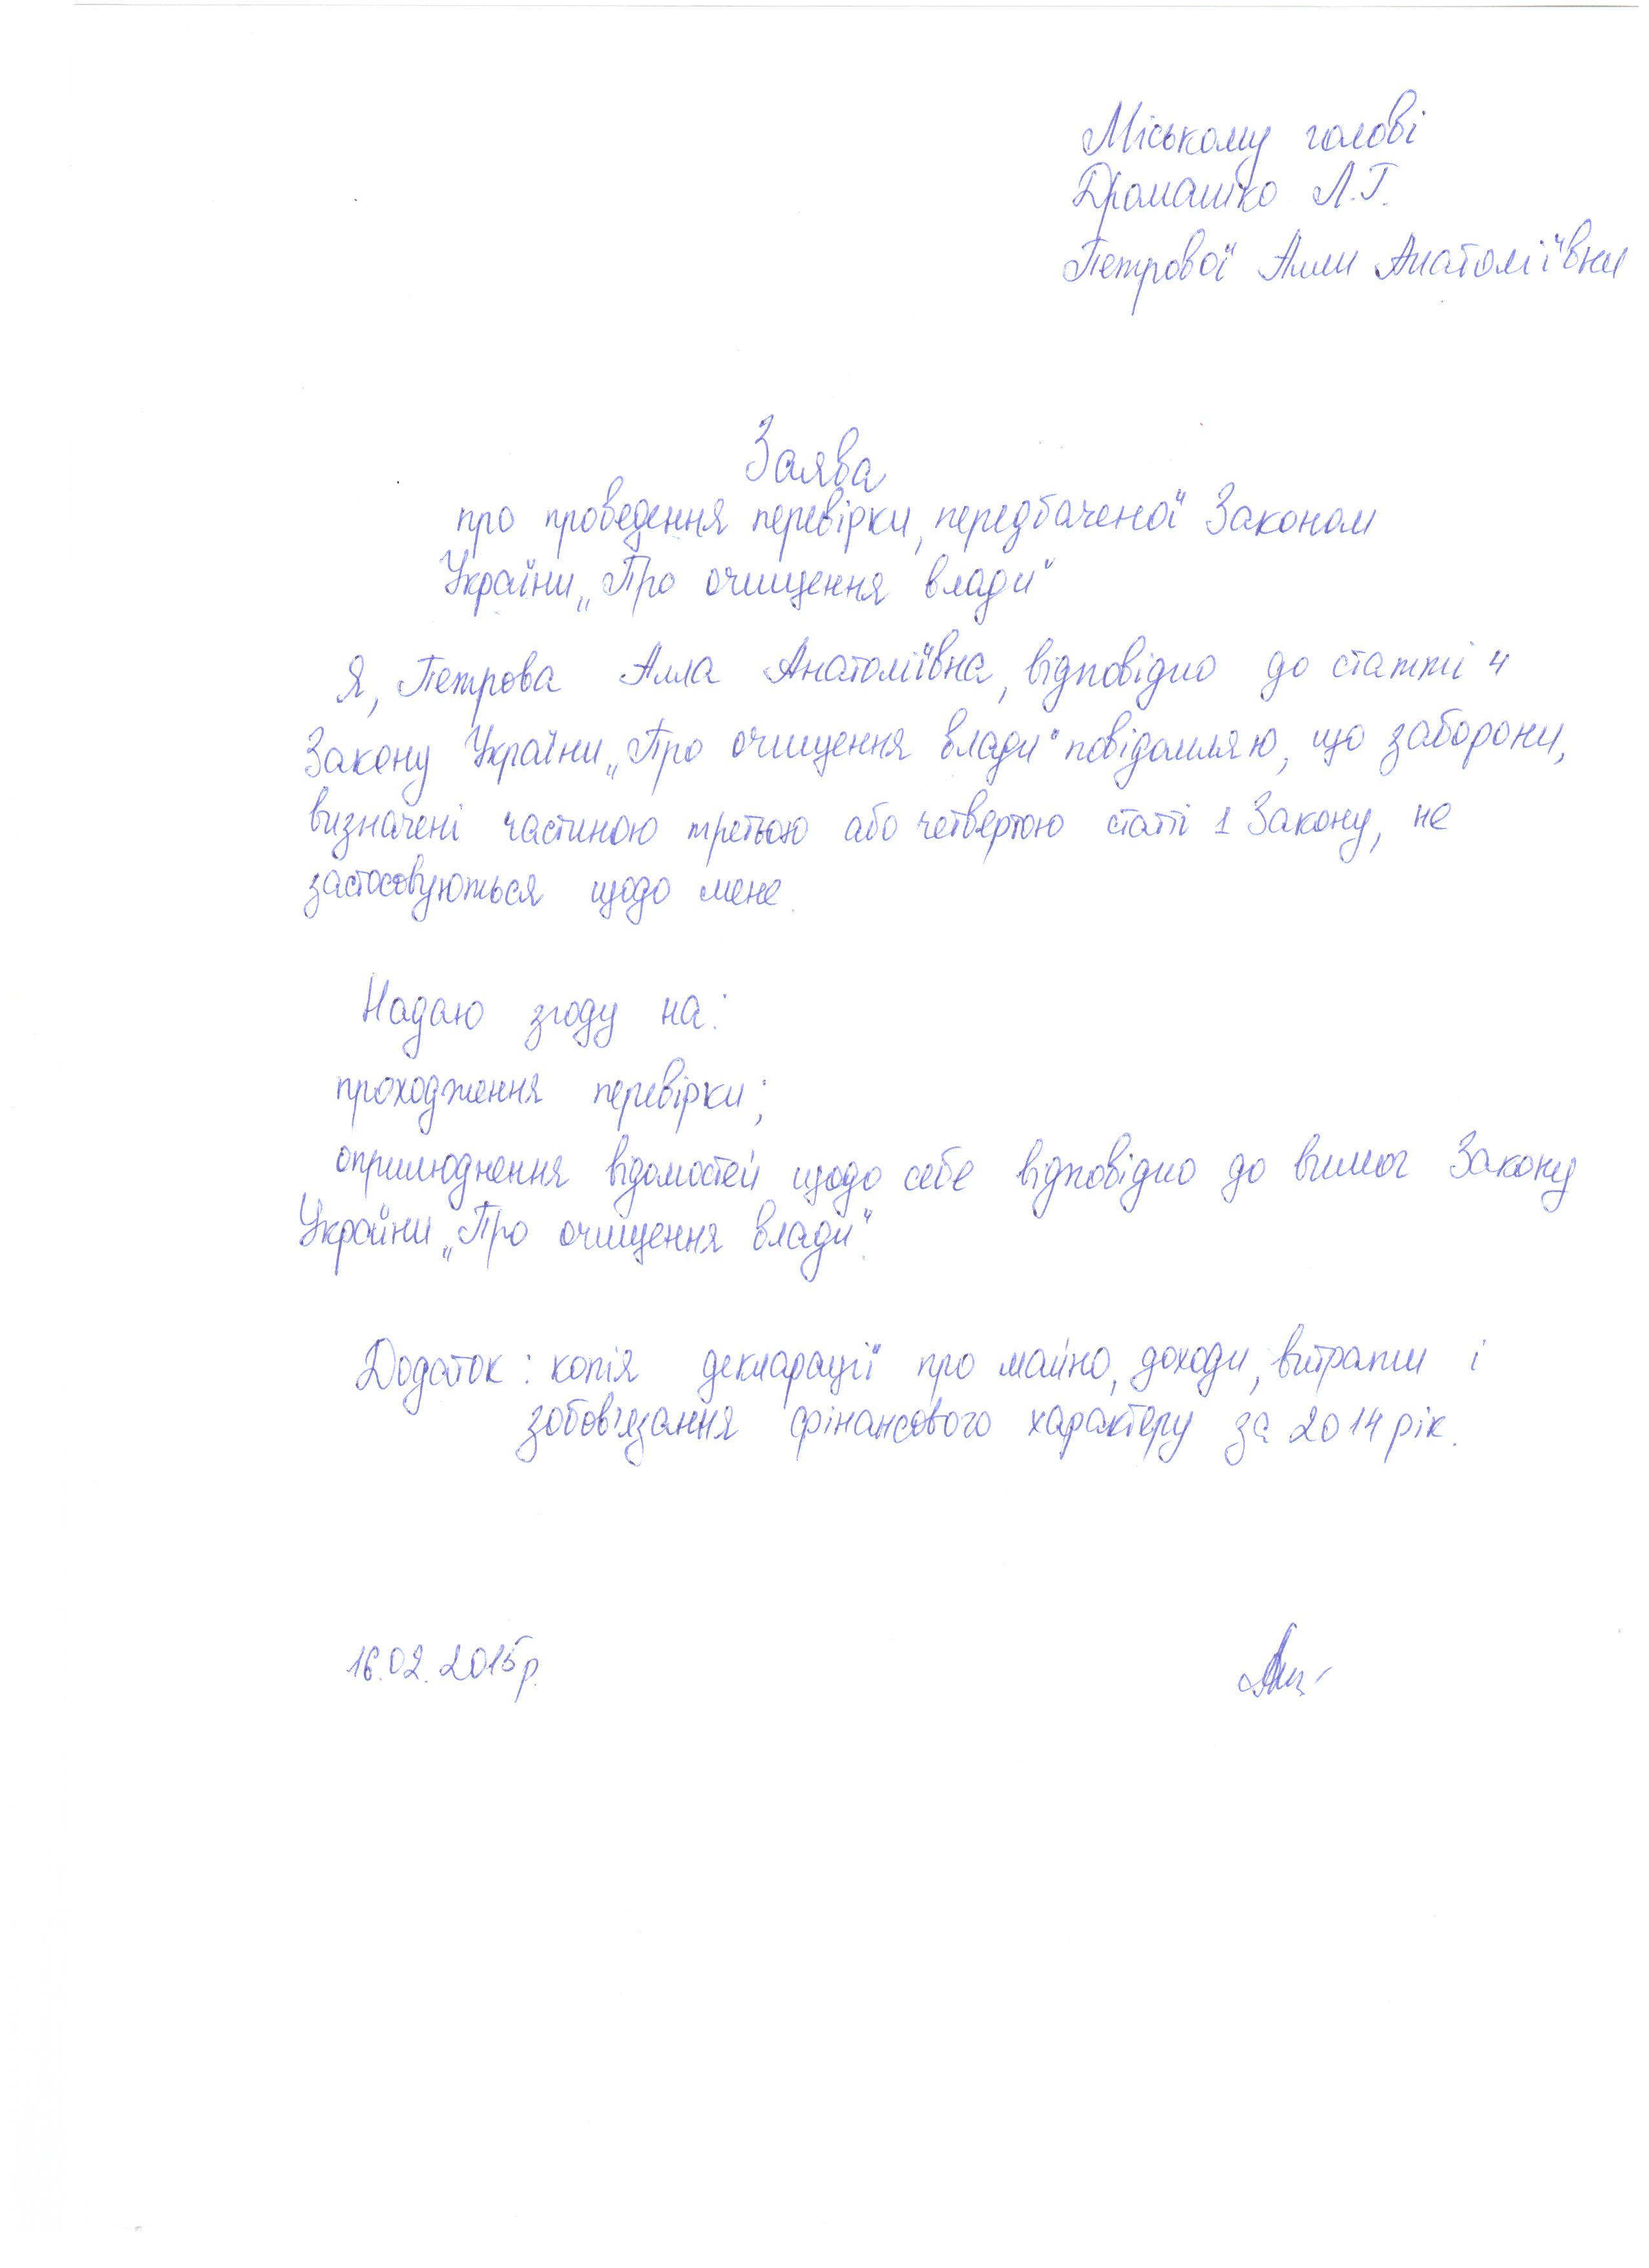 Міському голові
Дромашко Л.Г.
Петрової Алли Анатоліївни
Заява
про проведення перевірки, передбаченої Законом
України „Про очищення влади"
Я, Петрова Алла Анатоліївна, відповідно до статті 4
Закону України „Про очищення влади" повідомляю, що заборони,
визначені частиною третьою або четвертою статті 1 Закону, не
застосовуються щодо мене.
Надаю згоду на:
проходження перевірки;
оприлюднення відомостей щодо себе відповідно до вимог Закону
України „Про очищення влади".
Додаток: копія декларації про майно, доходи, витрати і
зобов'язання фінансового характеру за 2014 рік.
16.02.2015р.